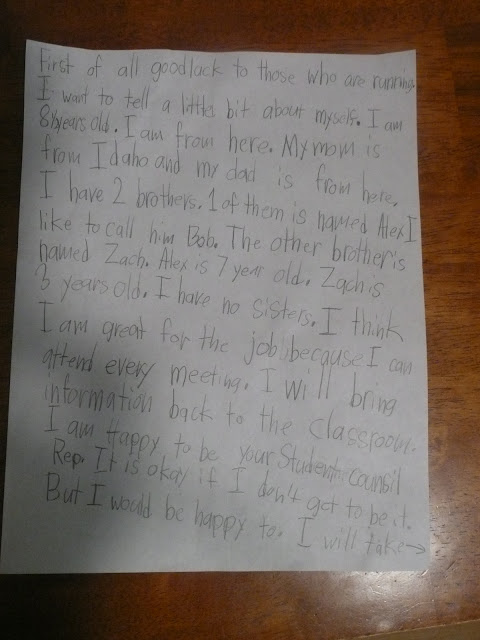 First of all goodlack to those who are running.
I want to tell a little bit about myself. I am
8½years old. I am from here. My mom is
from Idaho and my dad is from here.
I have 2 brothers. 1 of them is named Alex I
like to call him Bob. The other brother is
named Zach. Alex is 7 year old. Zach is
3 years old. I have no sisters. I think
I am great for the job because I can
attend every meeting. I will bring
information back to the classroom.
I am Happy to be your Student counsil
Rep. It is okay if I don't get to be it.
But I would be happy to. I will take→